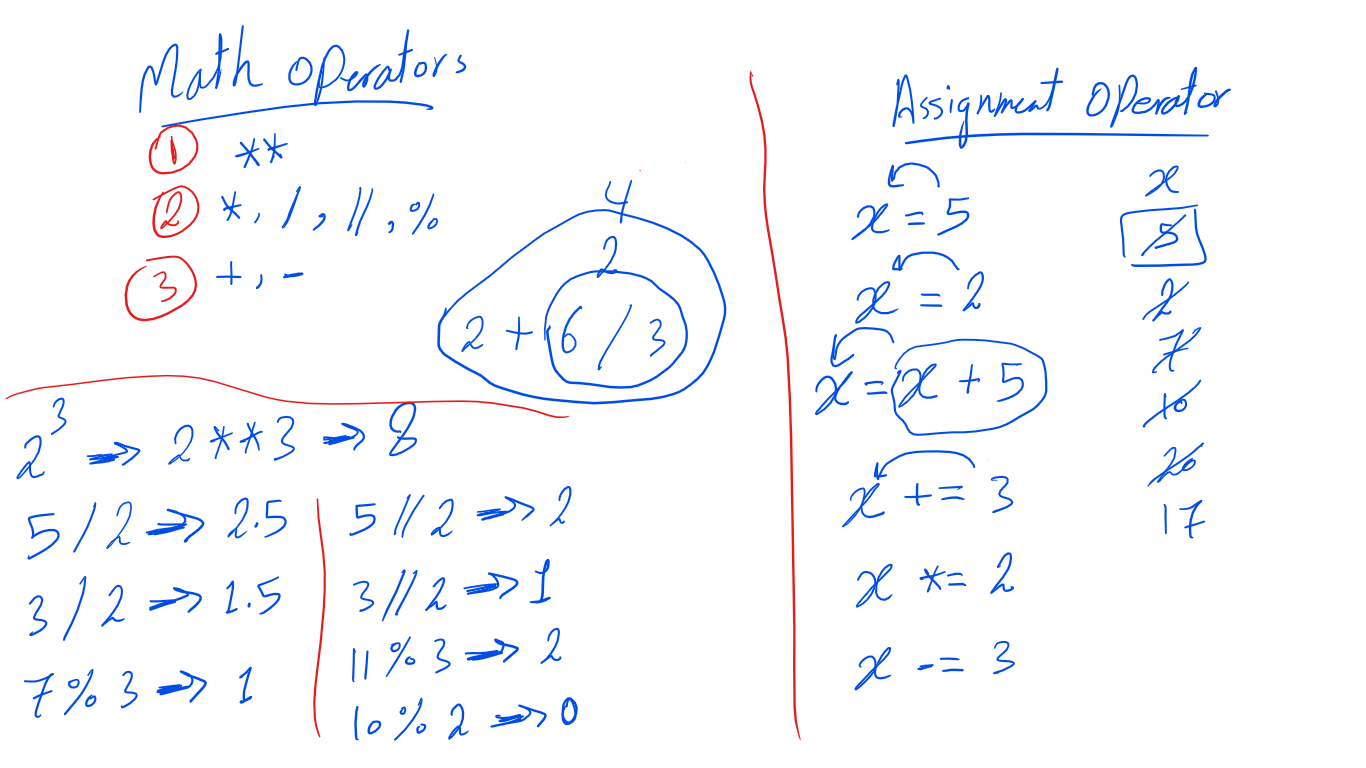 Math Operators
1 **
2 *, /, //, %
3 +, -
4
2
2 + 6 / 3
2³ ⇒ 2**3 ⇒ 8
5 / 2 ⇒ 2.5
3 / 2 ⇒ 1.5
7 % 3 ⇒ 1
5 // 2 ⇒ 2
3 // 2 ⇒ 1
11 % 3 ⇒ 2
10 % 2 ⇒ 0
Assignment Operator
x = 5
x = 2
x = x + 5
x += 3
x *= 2
x -= 3
x
5
2
7
10
20
17